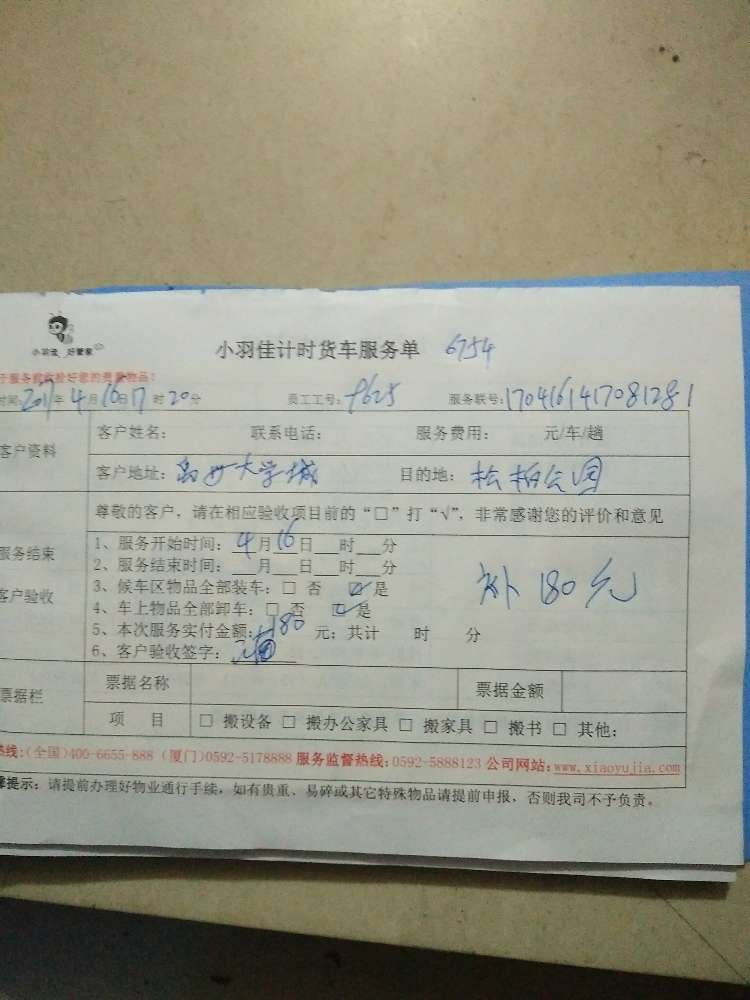 小羽佳 好管家
小羽佳计时货车服务单 6754
时间:2017年4月16日17时20分 员工工号:9625 服务联号:170416141708128-1
客户资料
客户姓名: 联系电话: 服务费用: 元/车/趟
客户地址:禹州大学城 目的地:松柏公园
尊敬的客户，请在相应验收项目前的“□”打“√”，非常感谢您的评价和意见
服务结束
客户验收
1、服务开始时间:4月16日___时___分
2、服务结束时间:___月___日___时___分
3、候车区物品全部装车:□ 否 ☑是
4、车上物品全部卸车:□ 否 ☑是
5、本次服务实付金额:180 元；共计 时 分
6、客户验收签字:
补180元
票据栏
票据名称 票据金额
项 目 □ 搬设备 □ 搬办公家具 □ 搬家具 □ 搬书 □ 其他:
热线:(全国)400-6655-888 (厦门)0592-5178888 服务监督热线:0592-5888123 公司网站:www.xiaoyujia.com
提示: 请提前办理好物业通行手续，如有贵重、易碎或其它特殊物品请提前申报，否则我司不予负责。